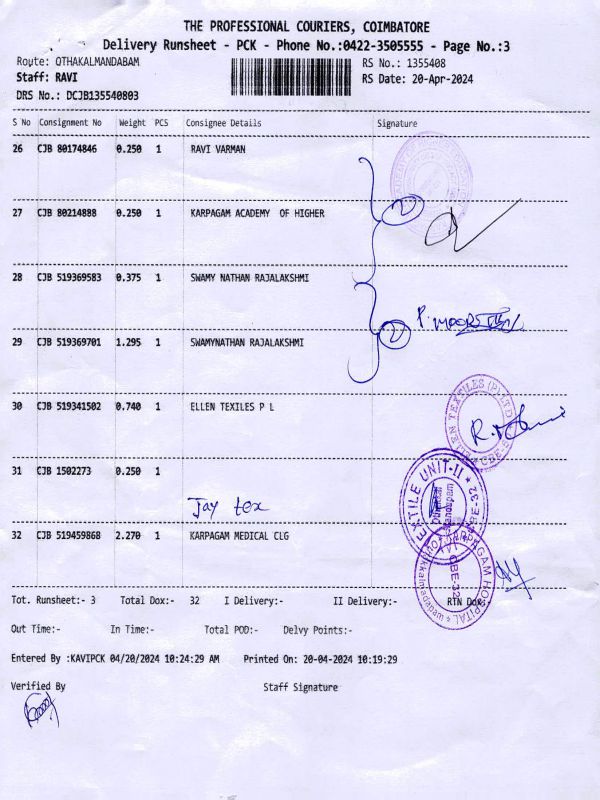 THE PROFESSIONAL COURIERS, COIMBATORE
Delivery Runsheet - PCK - Phone No.:0422-3505555 - Page No.:3
Route: OTHAKALMANDABAM
RS No.: 1355408
Staff: RAVI
RS Date: 20-Apr-2024
DRS No.: DCJB135540803
S No Consignment No Weight PCS Consignee Details Signature
26 CJB 80174846 0.250 1 RAVI VARMAN
27 CJB 80214888 0.250 1 KARPAGAM ACADEMY OF HIGHER
2
28 CJB 519369583 0.375 1 SWAMY NATHAN RAJALAKSHMI
2
29 CJB 519369701 1.295 1 SWAMYNATHAN RAJALAKSHMI
30 CJB 519341502 0.740 1 ELLEN TEXILES P L
31 CJB 1502273 0.250 1
Jay tex
TEXTILE UNIT-II
32 CJB 519459868 2.270 1 KARPAGAM MEDICAL CLG
Tot. Runsheet:- 3 Total Dox:- 32 I Delivery:- II Delivery:- RTN Dox:-
Out Time:- In Time:- Total POD:- Delvy Points:-
Entered By :KAVIPCK 04/20/2024 10:24:29 AM Printed On: 20-04-2024 10:19:29
Verified By Staff Signature